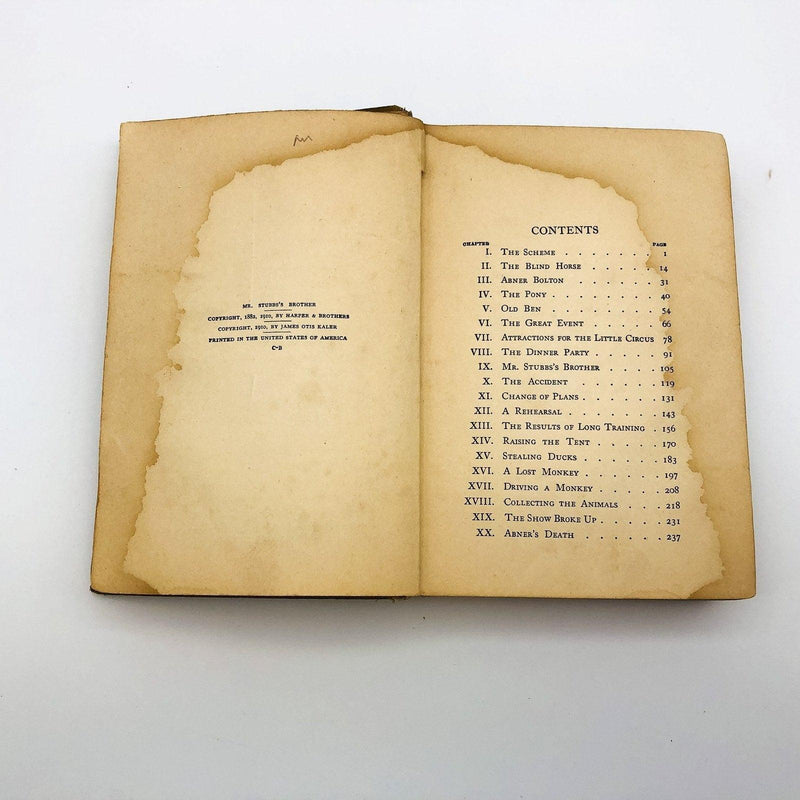 MR. STUBBS'S BROTHER
COPYRIGHT, 1882, 1910, BY HARPER & BROTHERS
COPYRIGHT, 1910, BY JAMES OTIS KALER
PRINTED IN THE UNITED STATES OF AMERICA
C-B
CONTENTS
CHAPTER PAGE
I. THE SCHEME . . . . . . . 1
II. THE BLIND HORSE . . . . . 14
III. ABNER BOLTON . . . . . . 31
IV. THE PONY . . . . . . . 40
V. OLD BEN . . . . . . . 54
VI. THE GREAT EVENT . . . . . 66
VII. ATTRACTIONS FOR THE LITTLE CIRCUS 78
VIII. THE DINNER PARTY . . . . . 91
IX. MR. STUBBS'S BROTHER . . . . 105
X. THE ACCIDENT . . . . . . 119
XI. CHANGE OF PLANS . . . . . . 131
XII. A REHEARSAL . . . . . . 143
XIII. THE RESULTS OF LONG TRAINING . 156
XIV. RAISING THE TENT . . . . . 170
XV. STEALING DUCKS . . . . . . 183
XVI. A LOST MONKEY . . . . . . 197
XVII. DRIVING A MONKEY . . . . . 208
XVIII. COLLECTING THE ANIMALS . . . 218
XIX. THE SHOW BROKE UP . . . . . 231
XX. ABNER'S DEATH . . . . . . 237